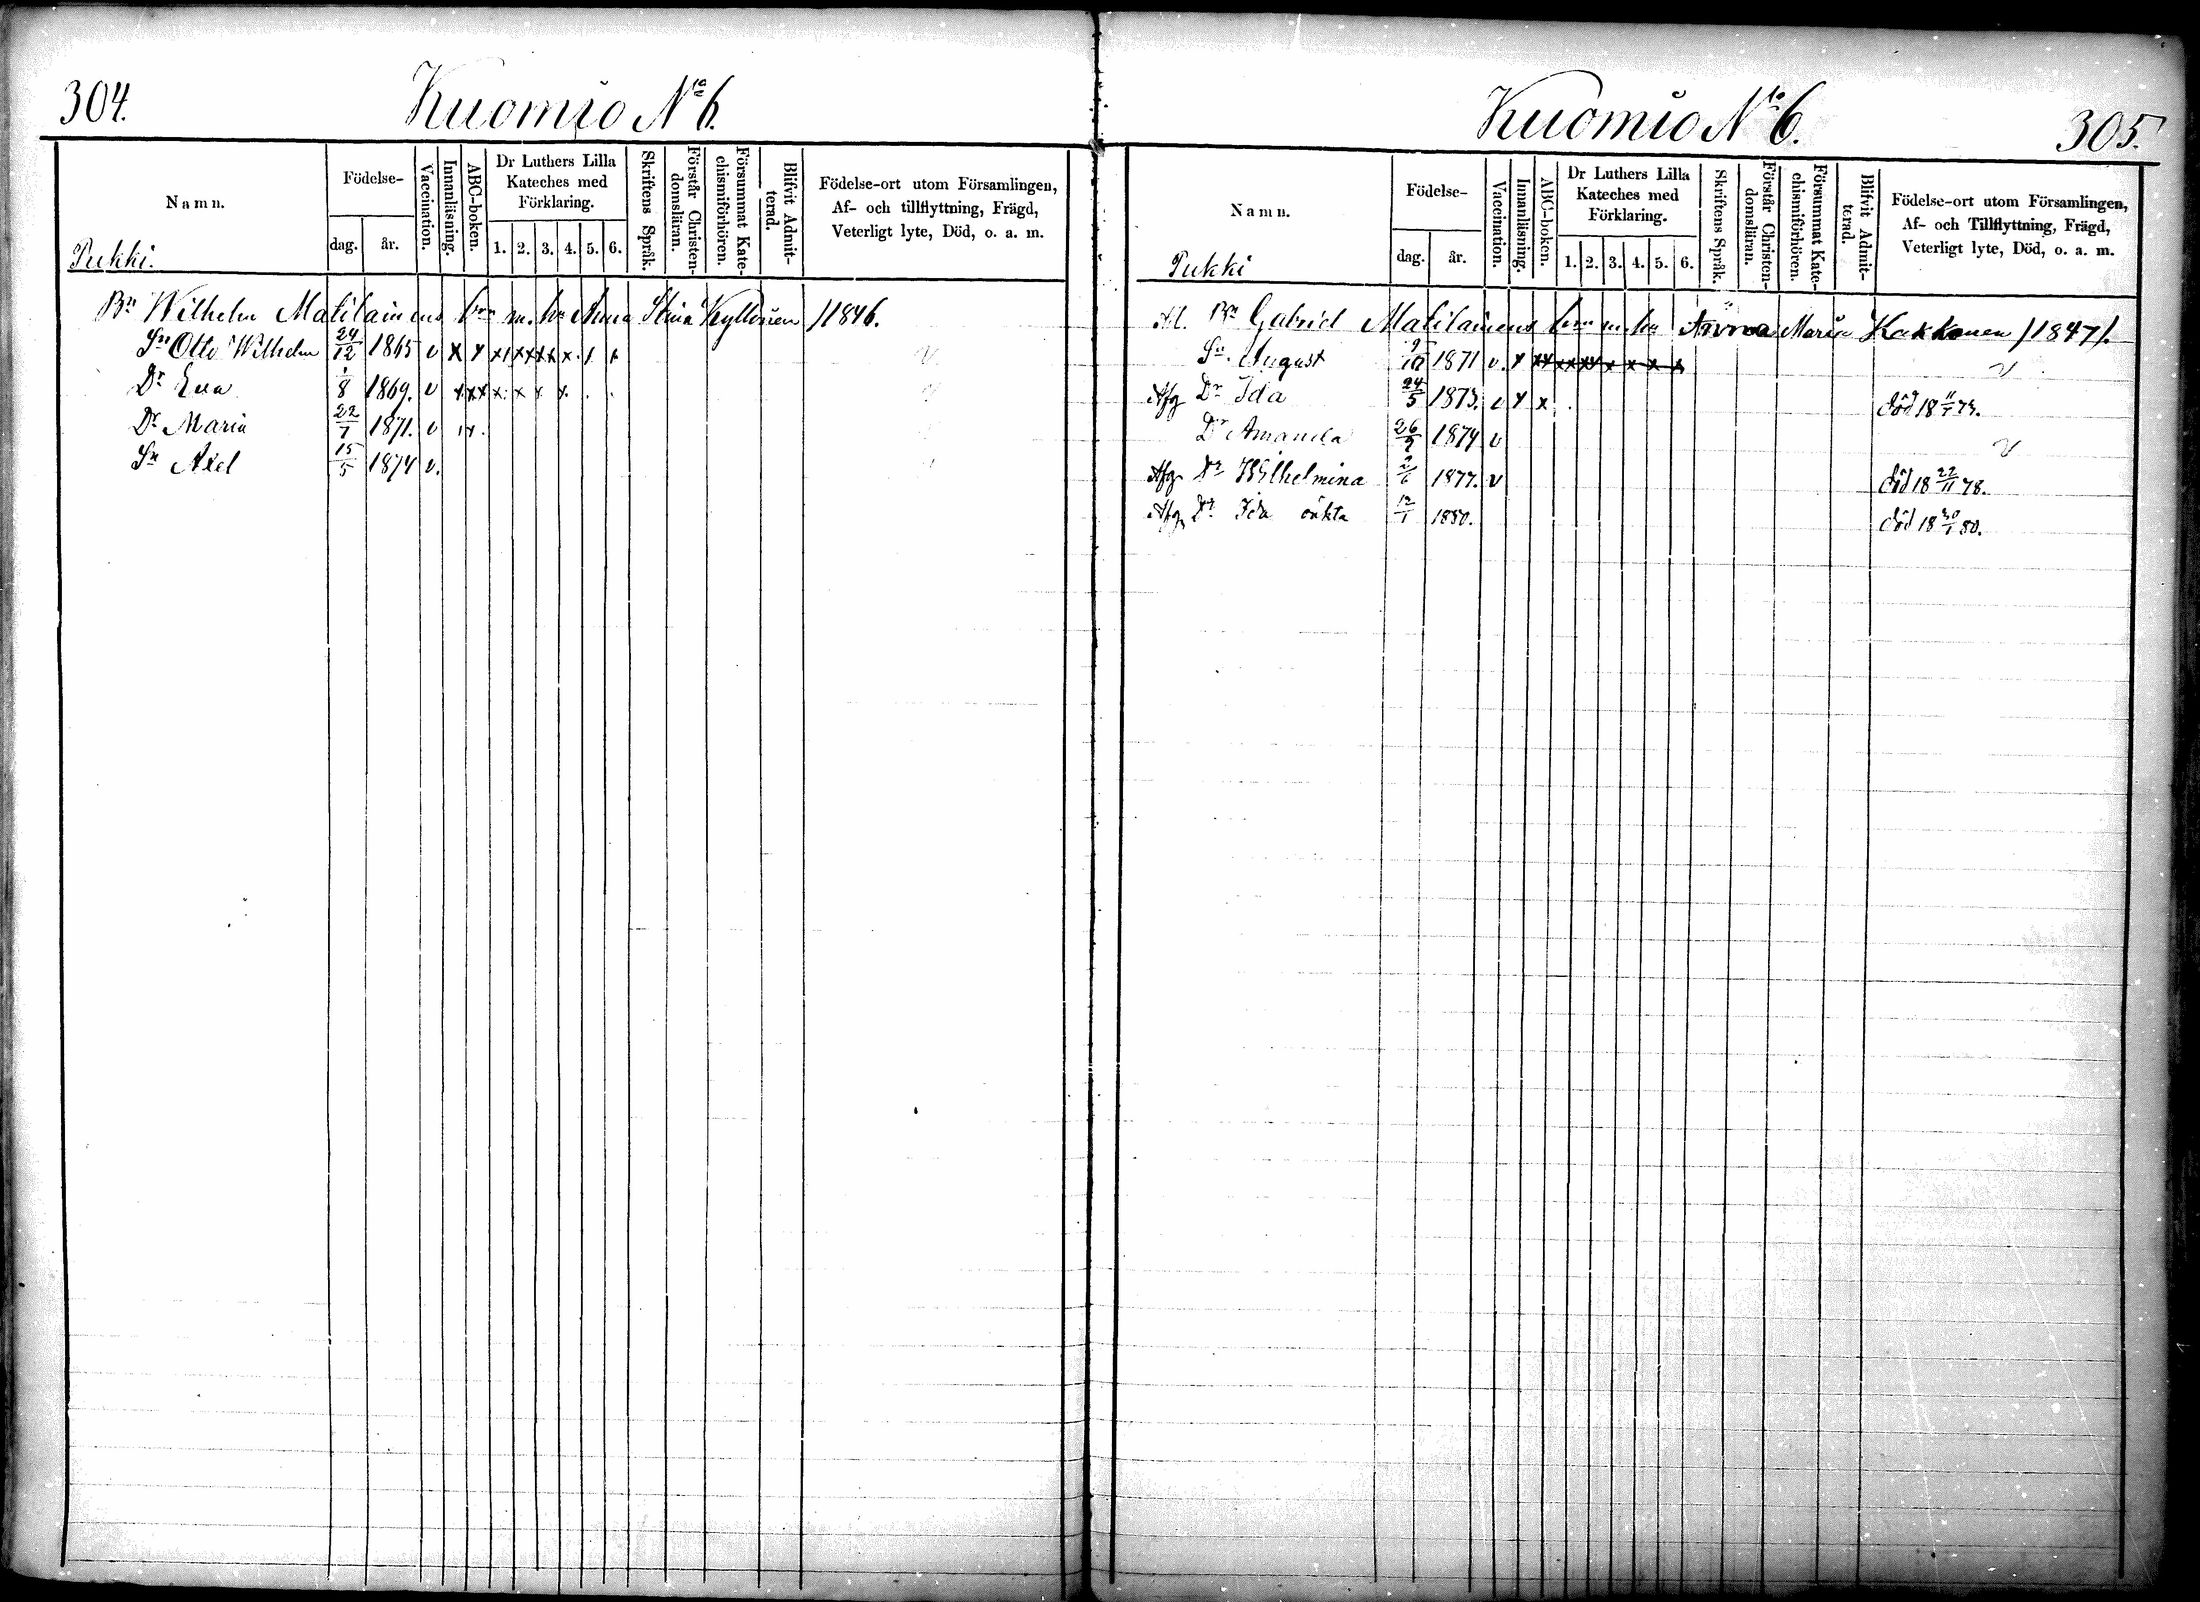 304.
Kuomio No 6.
Namn.
Födelse-
dag. år.
Vaccination.
Innanläsning.
ABC-boken.
Dr Luthers Lilla Kateches med Förklaring.
1. 2. 3. 4. 5. 6.
Skriftens Språk.
Förstår Christen-domsläran.
Försummat Kate-chismiförhören.
Blifvit Admit-terad.
Födelse-ort utom Församlingen,
Af- och tillflyttning, Frägd,
Veterligt lyte, Död, o. a. m.
Pukki.
Bn Wilhelm Matilainens brn m. hu Anna Stina Kyllönen /1846.
Sn Otto Wilhelm 24/12 1865 v x x x x x x x x x
Dr Eva 1/8 1869. v x x x x x x x
Dr Maria 22/7 1871. v
Sn Axel 15/5 1874 v.
Kuomio No 6.
305.
Namn.
Födelse-
dag. år.
Vaccination.
Innanläsning.
ABC-boken.
Dr Luthers Lilla Kateches med Förklaring.
1. 2. 3. 4. 5. 6.
Skriftens Språk.
Förstår Christen-domsläran.
Försummat Kate-chismiförhören.
Blifvit Admit-terad.
Födelse-ort utom Församlingen,
Af- och Tillflyttning, Frägd,
Veterligt lyte, Död, o. a. m.
Pukki
Bn Gabriel Matilainens brn m. hu Anna Maria Kakkonen /1847/.
Sn August 9/10 1871 v. x xx xx xx x x x x v
Afg Dr Ida 24/5 1873. v x x död 18 11/5 75.
Dr Amanda 26/9 1874 v v
Afg Dr Wilhelmina 2/6 1877. v död 18 22/11 78.
Afg Dr Ida oäkta 12/1 1880. död 18 30/1 80.